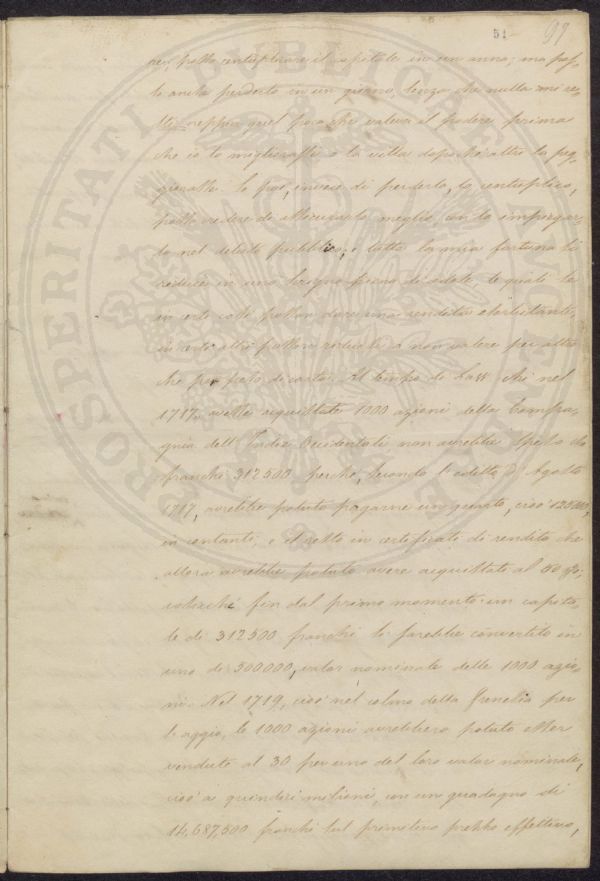 51 97
posso centuplicare il capitale in un anno; ma pos-
so anche perderlo in un giorno, senza che nulla mi re-
sti, neppur quel poco che valeva il podere prima
che io lo migliorassi o la villa dopo che altri la peg-
giorasse. Se poi, invece di perderlo, lo centuplico,
posso vedere di assicurarlo meglio, con lo impiegar-
lo nel debito pubblico; e tutta la mia fortuna si
riduce in uno scrigno pieno di cedole, le quali se
in certi casi posson dare una rendita esorbitante,
in certi altri posson ridursi a non valere per altro
che pel peso di carta. Al tempo di Law chi nel
1717 avesse acquistato 1000 azioni della Compa-
gnia dell' Indie Occidentali non avrebbe speso che
franchi 312500 perchè, secondo l' editto d' Agosto
1717, avrebbe potuto pagarne un quarto, cioè 125000,
in contante, e il resto in certificati di rendita che
allora avrebbe potuto avere acquistato al 50 %,
cosicchè fin dal primo momento un capita-
le di 312500 franchi lo sarebbe convertito in
uno di 500000, valor nominale delle 1000 azio-
ni. Nel 1719, cioè nel colmo della frenesia per
l' aggio, le 1000 azioni avrebbero potuto esser
vendute al 30 per uno del loro valor nominale,
cioè a quindici milioni, con un guadagno di
14,687,500 franchi sul primitivo prezzo effettivo,
PROSPERITATI PUBLICAE AUGENDAE